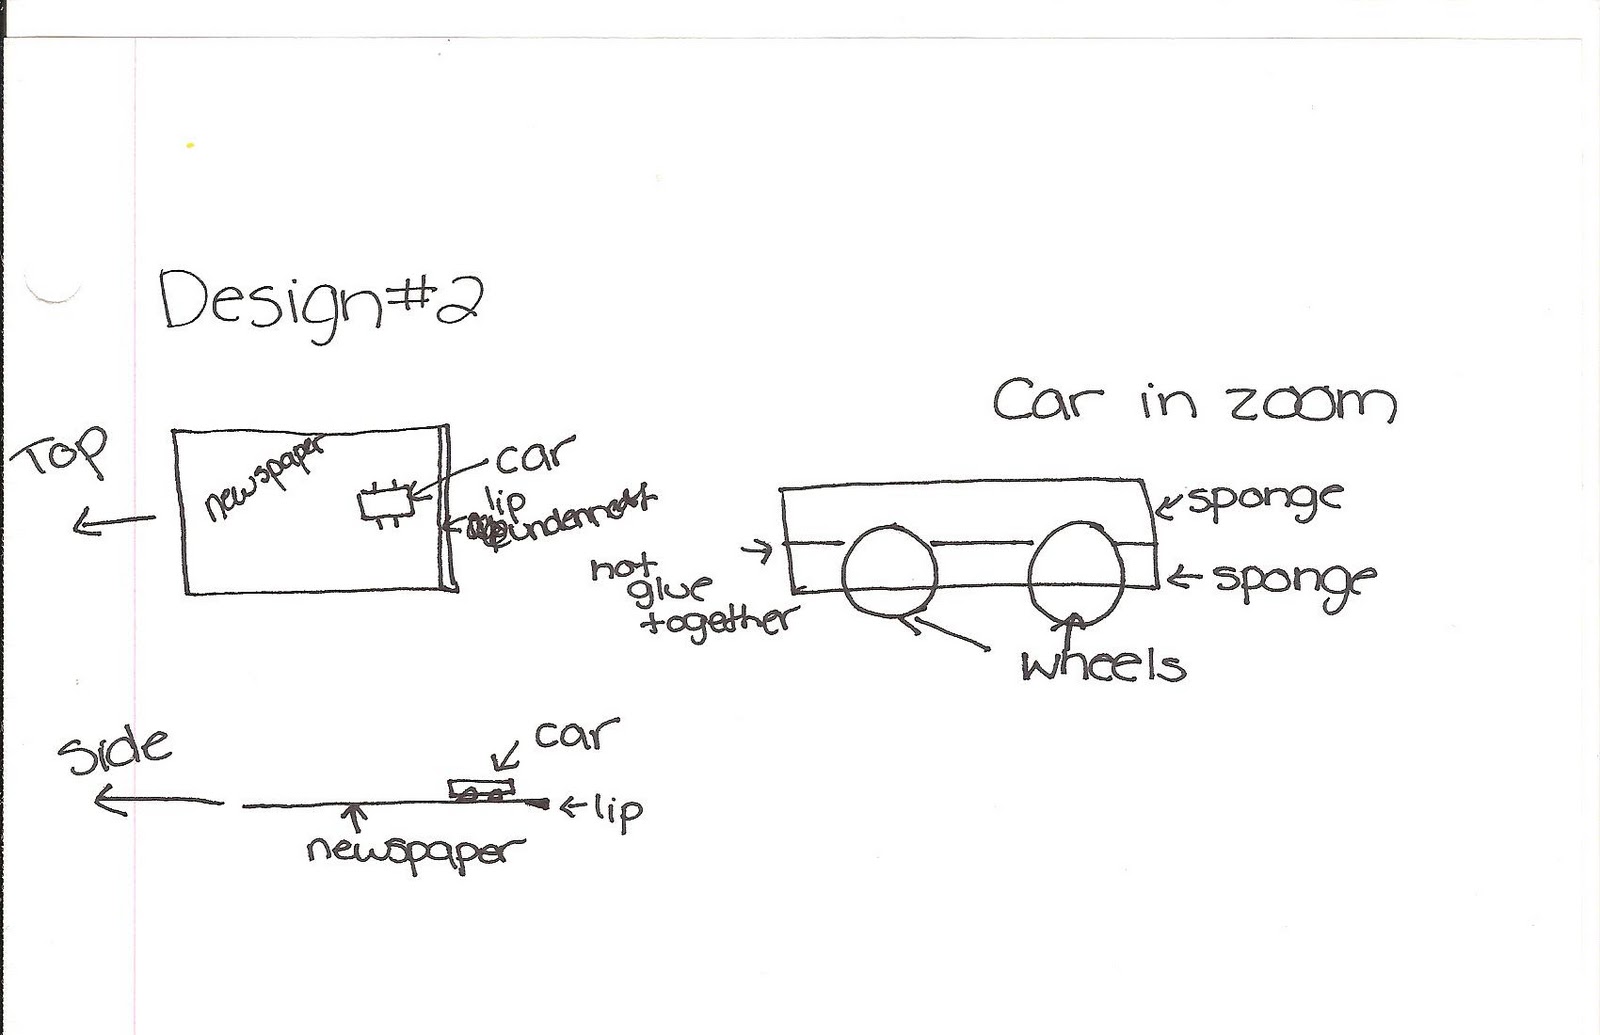 Design #2
Car in zoom
Top
newspaper
car
lip
sponge
not
glue
together
sponge
wheels
Side
car
lip
newspaper